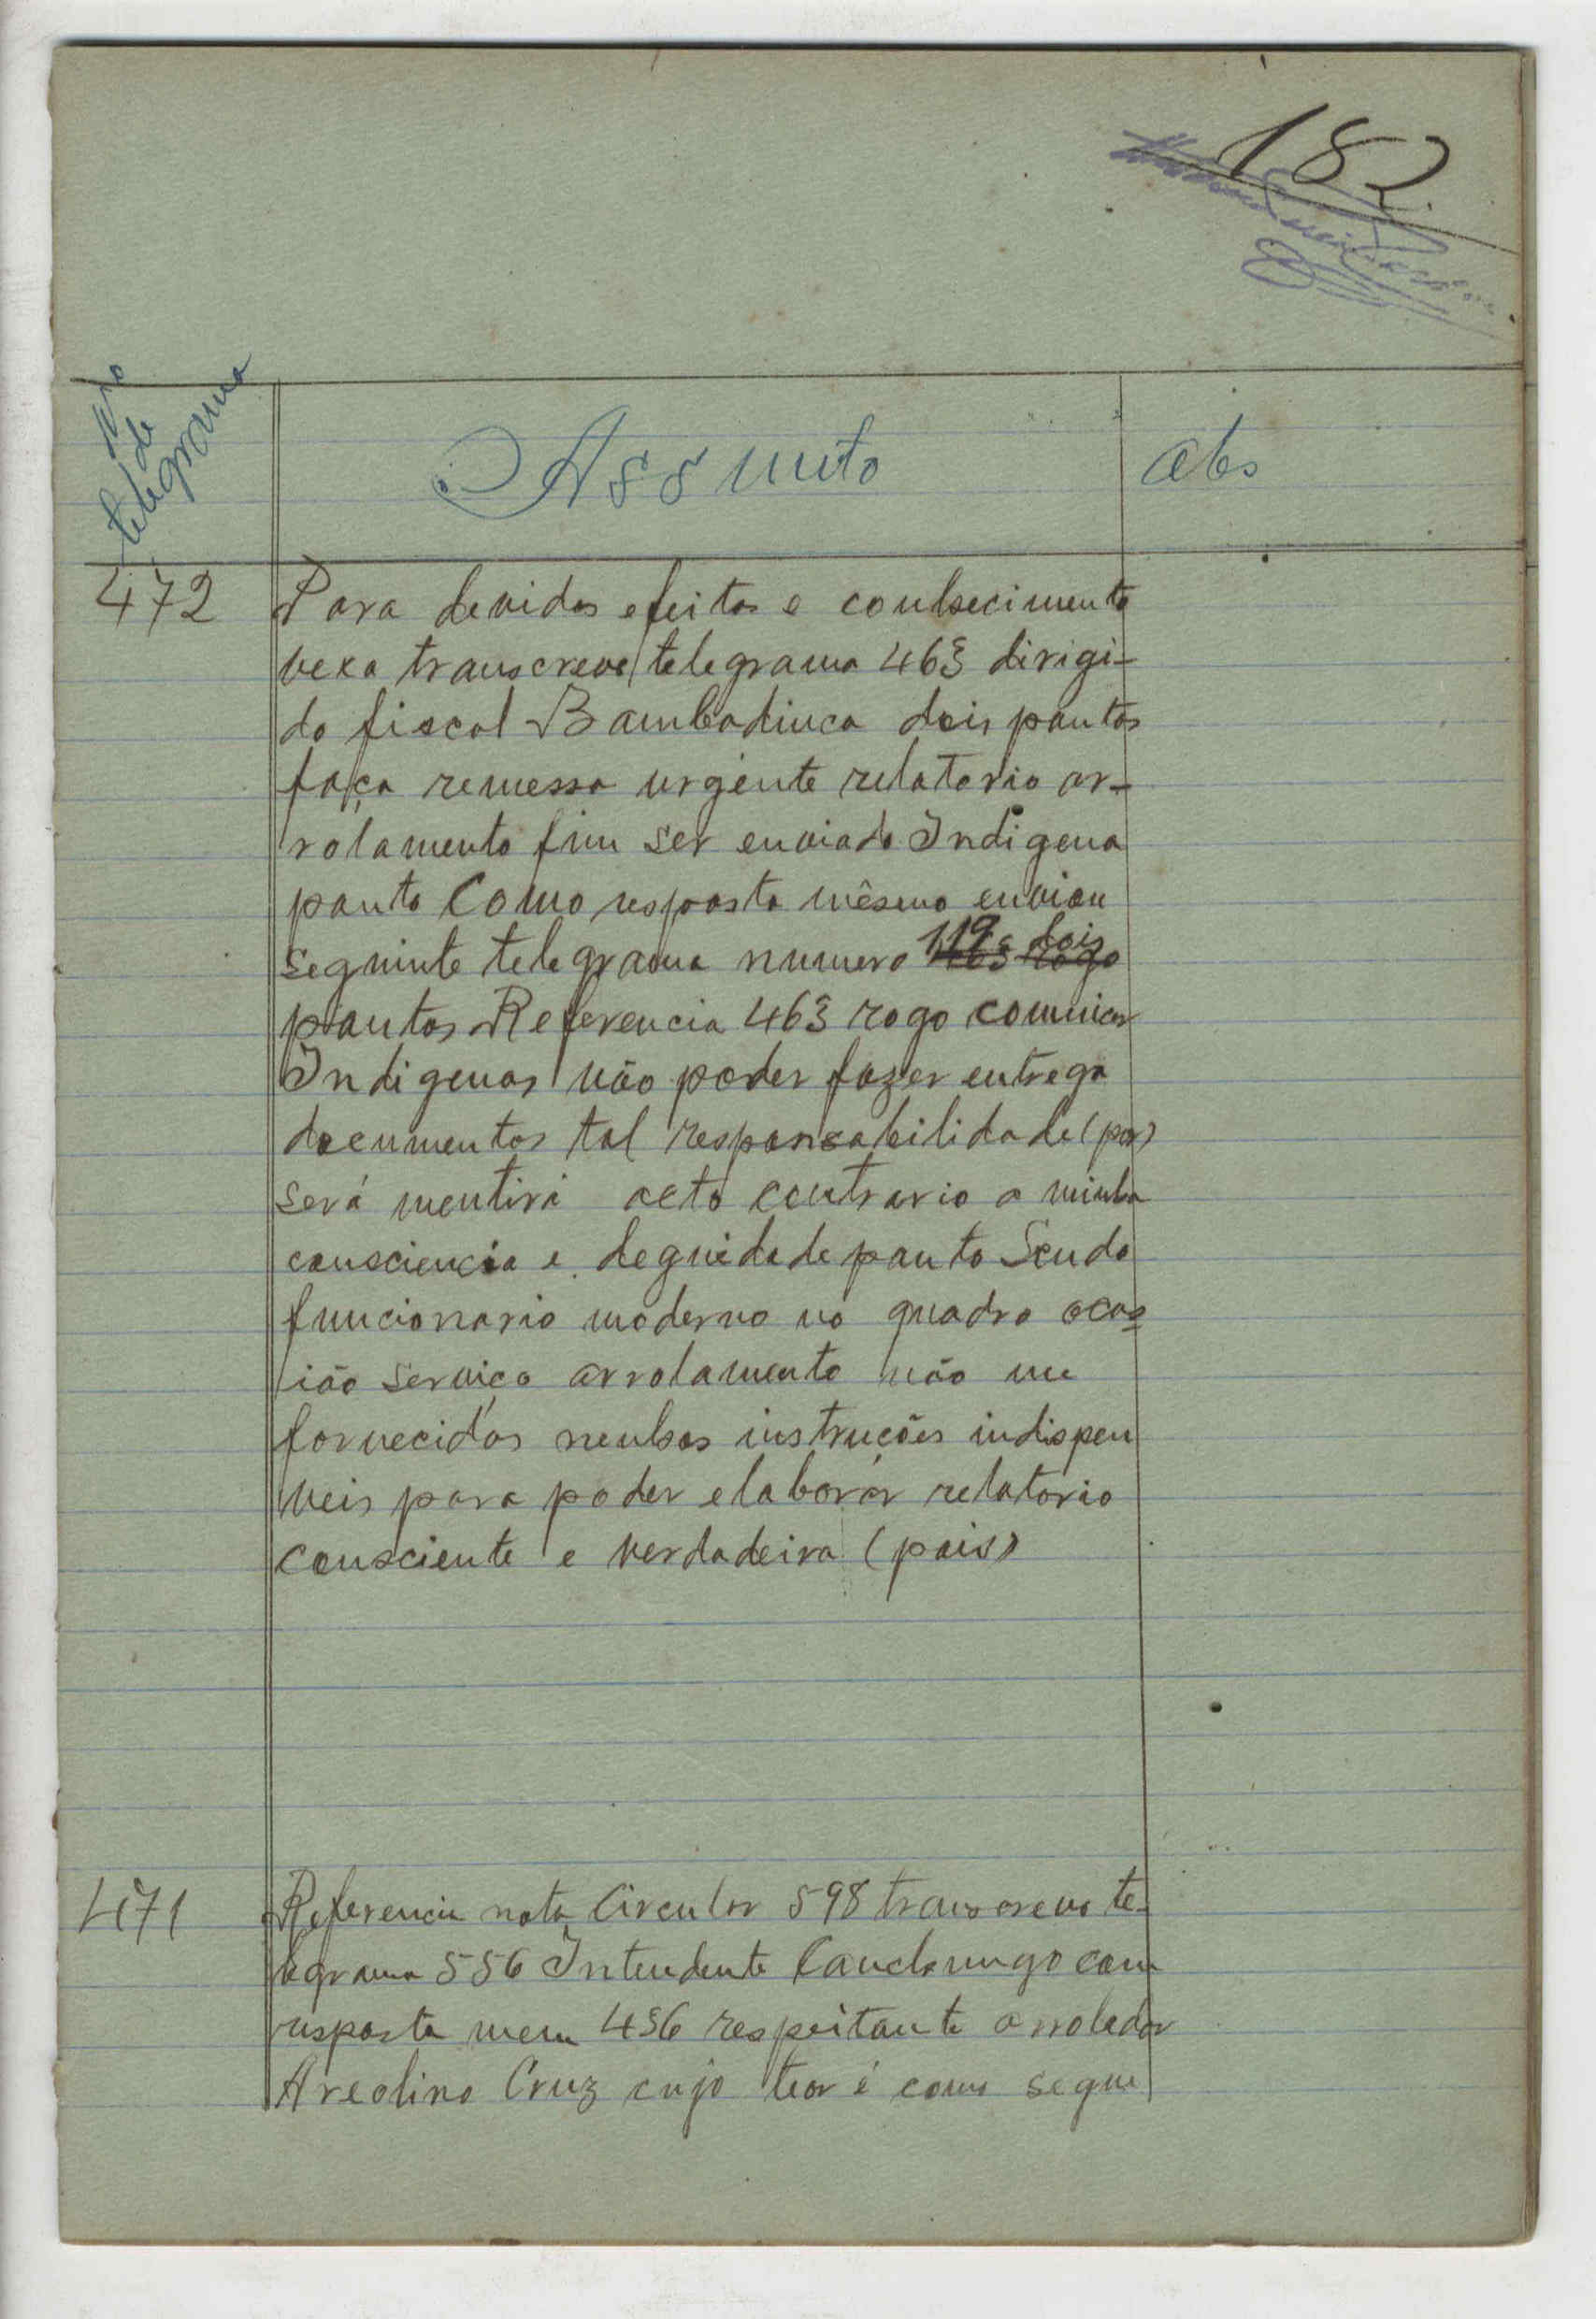 182
Nro
de
telegrama
Assunto
Obs
472
Para devidos efeitos e conhecimento
vexa transcrevo telegrama 463 dirigi-
do fiscal Bambadinca dois pontos
faça remessa urgente relatorio ar-
rolamento fim ser enviado Indigena
ponto Como resposta mêsmo enviou
seguinte telegrama numero 119 dois
pontos Referencia 463 rogo comunicar
Indigenas não poder fazer entrega
documentos tal responsabilidade (por)
será mentira acto contrario a minha
consciencia e deguidade ponto Sendo
funcionario moderno no quadro ocas-
ião serviço arrolamento não me
fornecidos nenhas instruções indispen
veis para poder elaborár relatorio
consciente e verdadeira (pois)
471
Referencia nota Circular 598 transcrevo te-
legrama 556 Intendente Canchungo com
resposta meu 456 respeitante arrolador
Areolino Cruz cujo teor é como segue